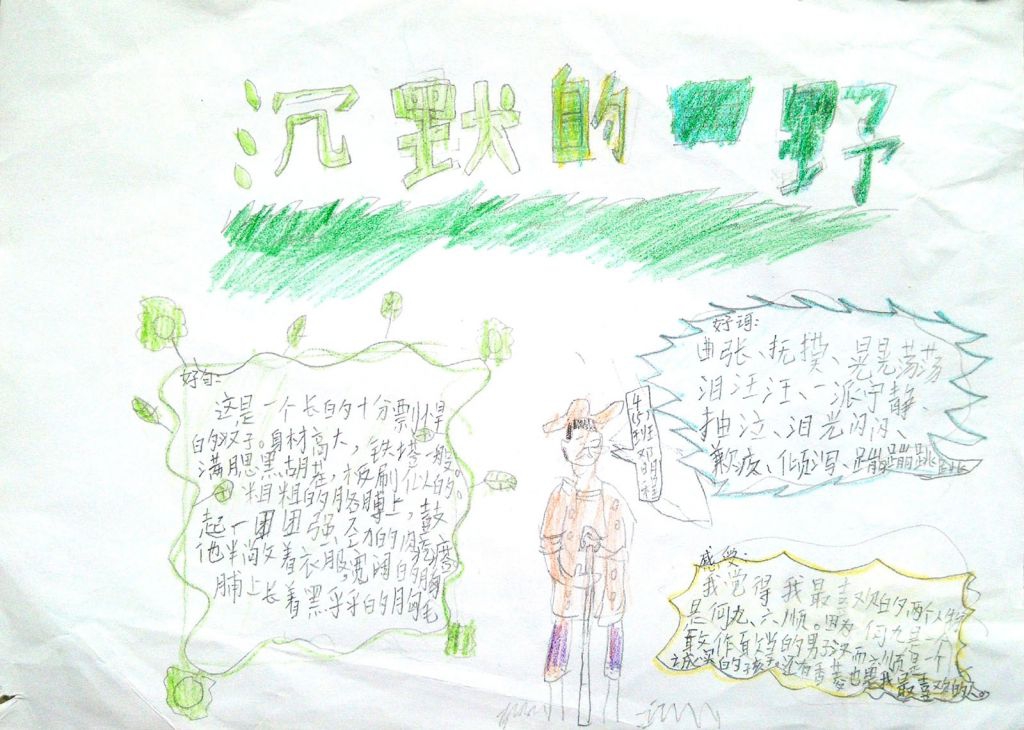 沉默的田野
好句:
这是一个长的十分剽悍
的汉子。身材高大,铁塔一般。
满腮黑胡茬,板刷似的。
粗粗的胳膊上,鼓
起一团团强劲的肉疙瘩
他半敞着衣服,宽阔的胸
脯上长着黑乎乎的胸毛
4(5)班
邓
好词:
曲张、抚摸、晃晃荡荡
泪汪汪、一派宁静、
抽泣、泪光闪闪、
歉疚、倾泻、蹦蹦跳跳
感受:
我觉得我最喜欢的两个人物
是何九、六顺。因为何九是一个
敢作敢当的男子汉而六顺是一个
诚实的孩子还有香菱也是我最喜欢的人。